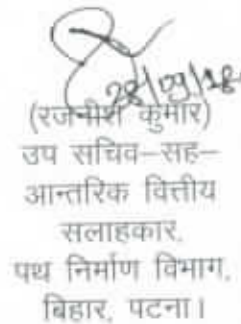 28/09/18
(रजनीश कुमार)
उप सचिव-सह-
आन्तरिक वित्तीय
सलाहकार,
पथ निर्माण विभाग,
बिहार, पटना।